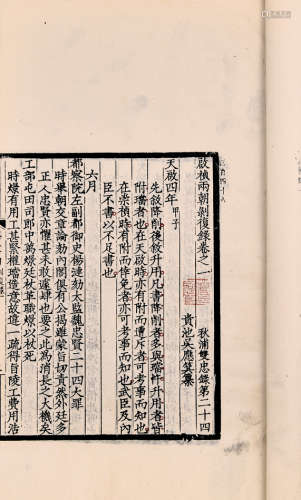 啟禎兩朝剝復錄卷之一
秋浦雙忠錄第二十四
貴池吳應箕纂
天啟四年甲子
先敘降削後敘升用凡書降削者多與璫忤升用者皆
附璫者也在天啟時亦有附而遭斥者可考事而知也
在崇禎時亦有附而倖免者亦可考事而知也武臣及內
臣不書以不足書也
六月
都察院左副都御史楊漣劾太監魏忠賢二十四大罪
時舉朝交章論劾內閣俱有公揭雖蒙旨切責然外廷多
正人忠賢亦懼甚未敢遽嶂也要之此為消長之大機矣
工部屯田司郎中萬燝廷杖革職燝以杖死
時燝有用工甚緊權璫造意故進一疏得旨陵工費用浩